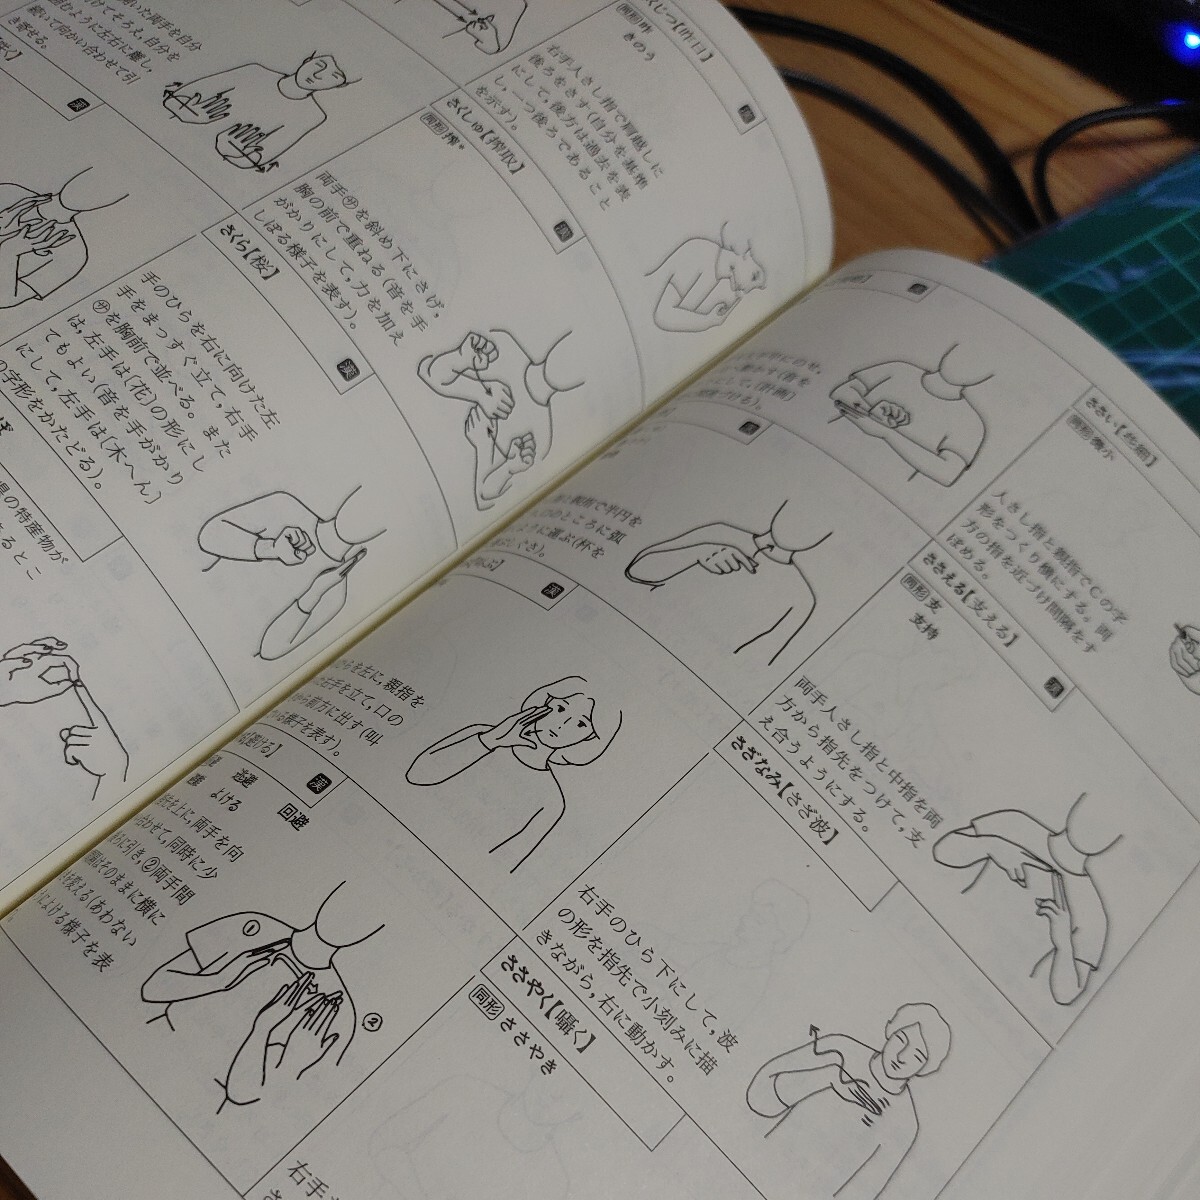 くじつ【昨日】
同形 昨
きのう
右手人さし指で肩越しに
後ろをさす(自分を基準
にして,後方は過去を表
し,一つ後ろであること
を示す)。
さくしゅ【搾取】
同形 搾*
両手㋚を斜め下にさげ,
胸の前で重ねる(音を手
がかりにして,力を加え
しぼる様子を表す)。
漢
さくら【桜】
手のひらを右に向けた左
手をまっすぐ立て,右手
㋚を胸前で並べる。また
は,左手は(花)の形にし
てもよい(音を手がかり
にして,左手は〔木へん〕
の字形をかたどる)。
漢
県の特産物が
あるとこ
た両手を自分
けてそろえ,自分を
むように左右に離し,
描いて向かい合わせて引
き寄せる。
漢
ささい【些細】
同形 微小
人さし指と親指でCの字
形をつくり横にする。両
方の指を近づけ間隔をす
ぼめる。
ささえる【支える】
同形 支
支持
漢
両手人さし指と中指を両
方から指先をつけて,支
え合うようにする。
さざなみ【さざ波】
右手のひら下にして,波
の形を指先で小刻みに描
きながら,右に動かす。
ささやく【囁く】
同形 ささやき
右手
親指で半円を
のところに弧
ように運ぶ(杯を
漢
らを左に,親指を
右手を立て,口の
前方に出す(叫
様子を表す)。
避ける】
漢
逃避
よける
回避
先を上に,両手を向
合わせて,同時に少
に引き,②両手間
はそのままに横に
変える(あわない
よける様子を表
①
②